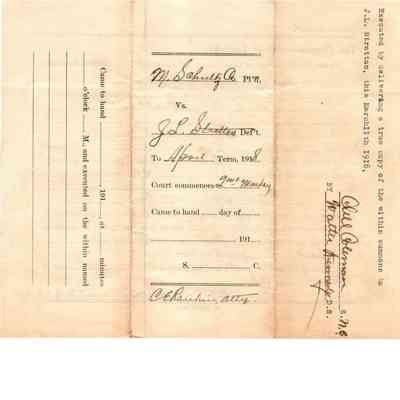 Came to hand ........ 191.., at .... minutes
.... o'clock .... M., and executed on the within named
M. Schultz Co Pl'ff,
Vs.
J L Stratton Def't.
To April Term, 1918.
Court commences on 2nd Monday
Came to hand ...... day of ......
.................... 191....
S. .................... C.
C C Rankin atty.
Executed by delivering a true copy of the within summons to
J.L. Stratton, this March 11th 1918.
Coleman S.
BY Walter D.S.